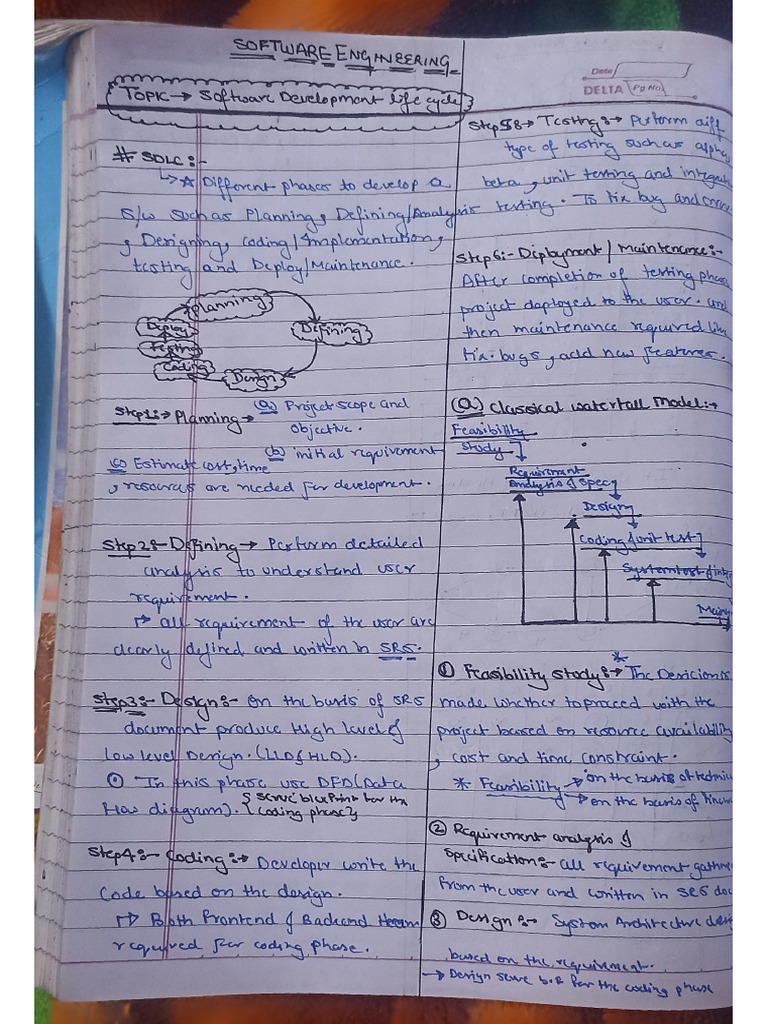 SOFTWARE ENGINEERING
Date
DELTA Pg No.
TOPIC → Software Development life cycle
# SDLC:-
↳ ☆ Different phases to develop a
S/w such as Planning, Defining/Analysis
, Designing, Coding/Implementation,
testing and Deploy/Maintenance.
Planning
Defining
Design
Coding
Testing
Deploy
Step1:→ Planning → (a) Project scope and
objective.
(b) initial requirement
(c) Estimate cost, time
, resources are needed for development.
Step2:- Defining → Perform detailed
analysis to understand user
requirement.
↱ all requirement of the user are
clearly defined and written in SRS.
Step3:- Design:- on the basis of SRS
document produce High level &
Low level Design. (LLD & HLD).
In this phase use DFD (Data
flow diagram). { serve blueprint for the
coding phase }
Step4:- Coding:→ Developer write the
Code based on the design.
↱ Both Frontend & Backend
required for coding phase.
Step5:→ Testing:→ Perform diff
type of testing such as alpha
beta, unit testing and
testing. To fix bug and
Step6:- Deployment / Maintenance:-
After completion of testing phase
project deployed to the user. and
then maintenance required like
fix bugs, add new features.
(a) Classical waterfall Model:→
Feasibility
study
Requirement
analysis & spec
Design
Coding & unit test
System test &
① Feasibility study:→ * The
made whether to proceed with the
project based on resource availability
, cost and time constraint.
* Feasibility → on the basis of
→ on the basis of
② Requirement analysis &
Specification:- all requirement
from the user and written in SRS
③ Design:→ System Architecture
based on the requirement.
→ Design serve b.p for the coding phase